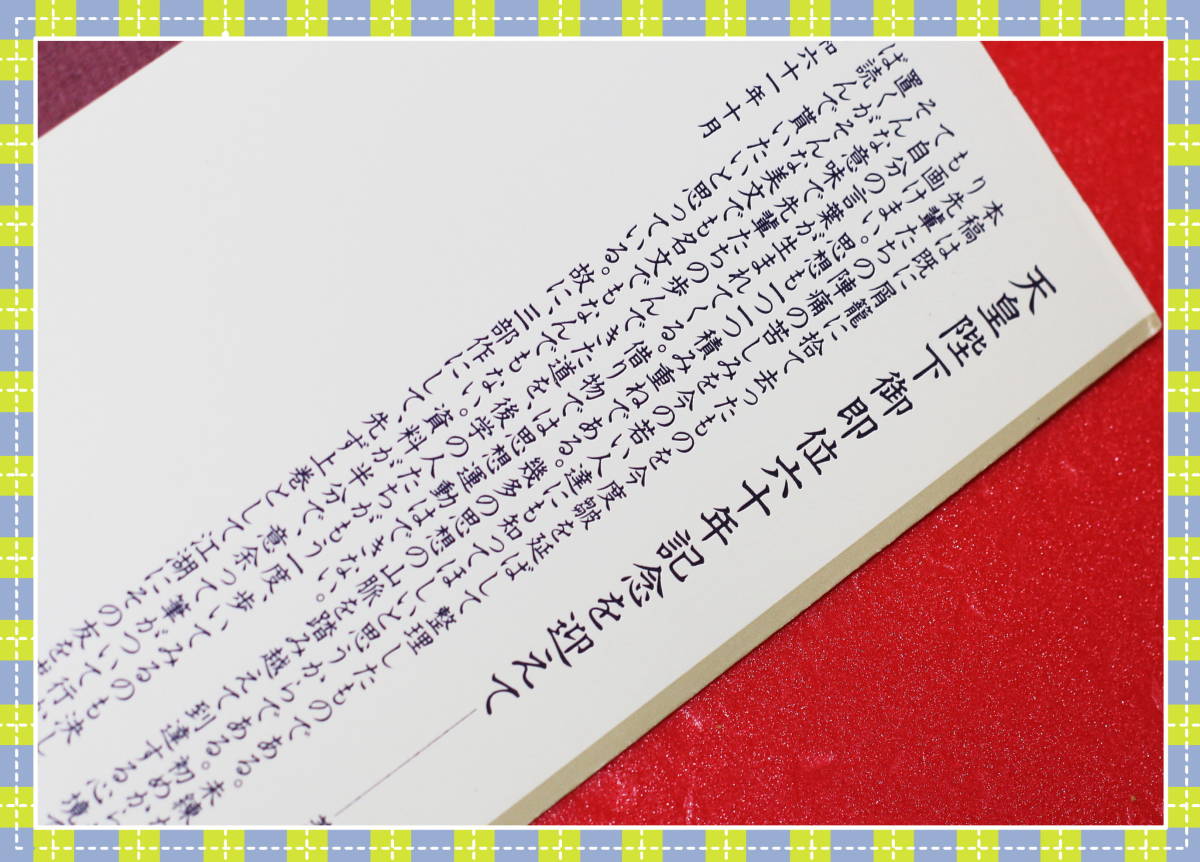 天皇陛下御即位六十年記念を迎えて
本稿は既に屑籠に捨て去ったものを今度皺を延ばして整理したものである。未練
り先輩たちの陣痛の苦しみを今の若い人達にも知ってほしいと思うからである。初めか
も画けまい。思想も一つ一つ積み重ねである。幾多の思想の山脈を踏み越えて到達する心境
て自分の言葉が生まれてくる。借り物では思想運動はできない。
そんな意味で先輩たちの歩んだ道を、後学の人たちがもう一度、歩いてみるのも決し
置くが美文でも名文でもなんでもない。資料が半分で、意余って筆がついて行
ば読んで貰いたいと思っている。故に三部作にして、先ず上巻として江湖にその友を
六十一年十月